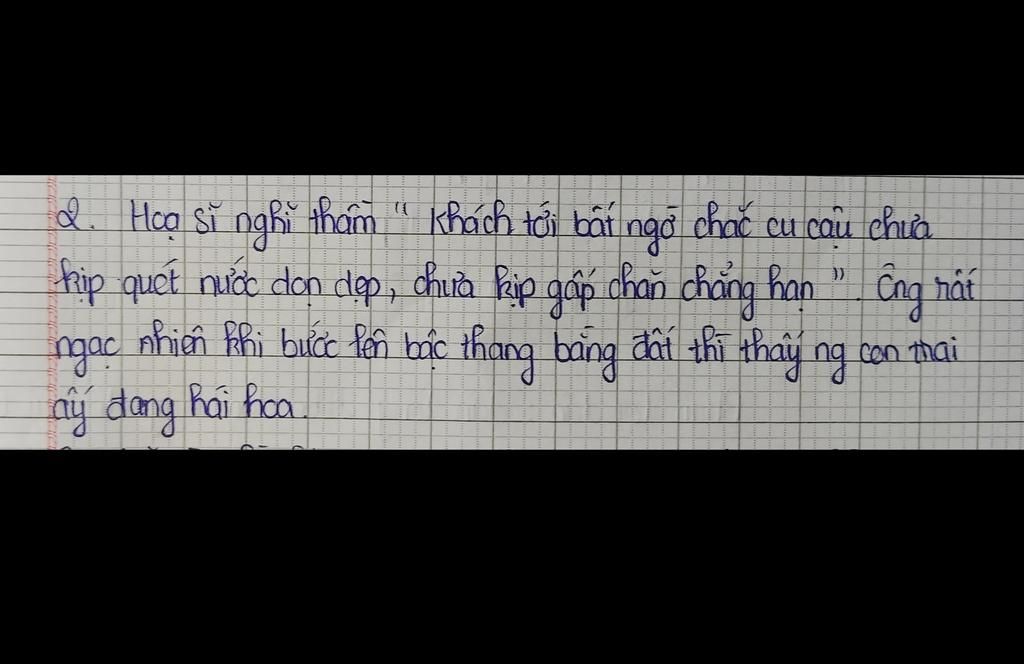 2. Hoạ sĩ nghĩ thầm " Khách tới bất ngờ chắc cu cậu chưa
kịp quét nước dọn dẹp, chưa kịp gấp chăn chẳng hạn". Ông rất
ngạc nhiên khi bước lên bậc thang bằng đất thì thấy ng con trai
ấy đang hái hoa.